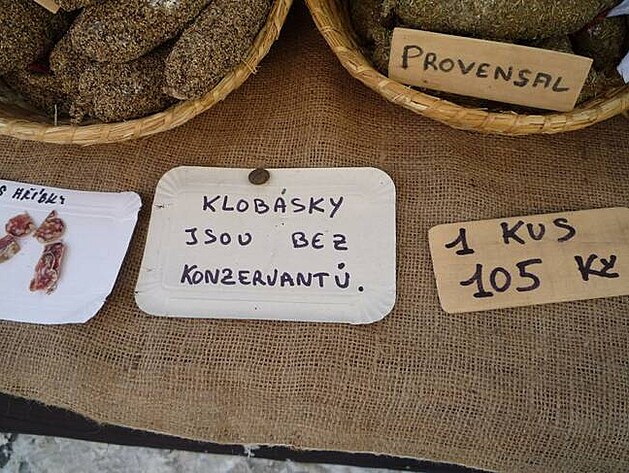 PROVENSAL
S HŘÍBKY
KLOBÁSKY
JSOU BEZ
KONZERVANTŮ.
1 KUS
105 Kč